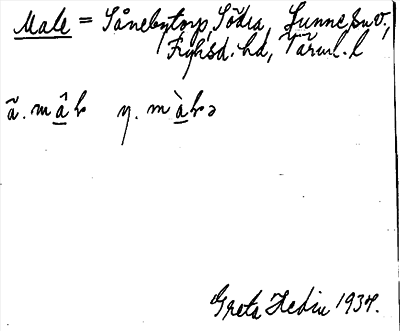 Male = Sånebytorp, Södra, Sunne sn,
Fryksd. hd, Värml. l
ä. mâl y. màlə
Greta Hedin 1937.